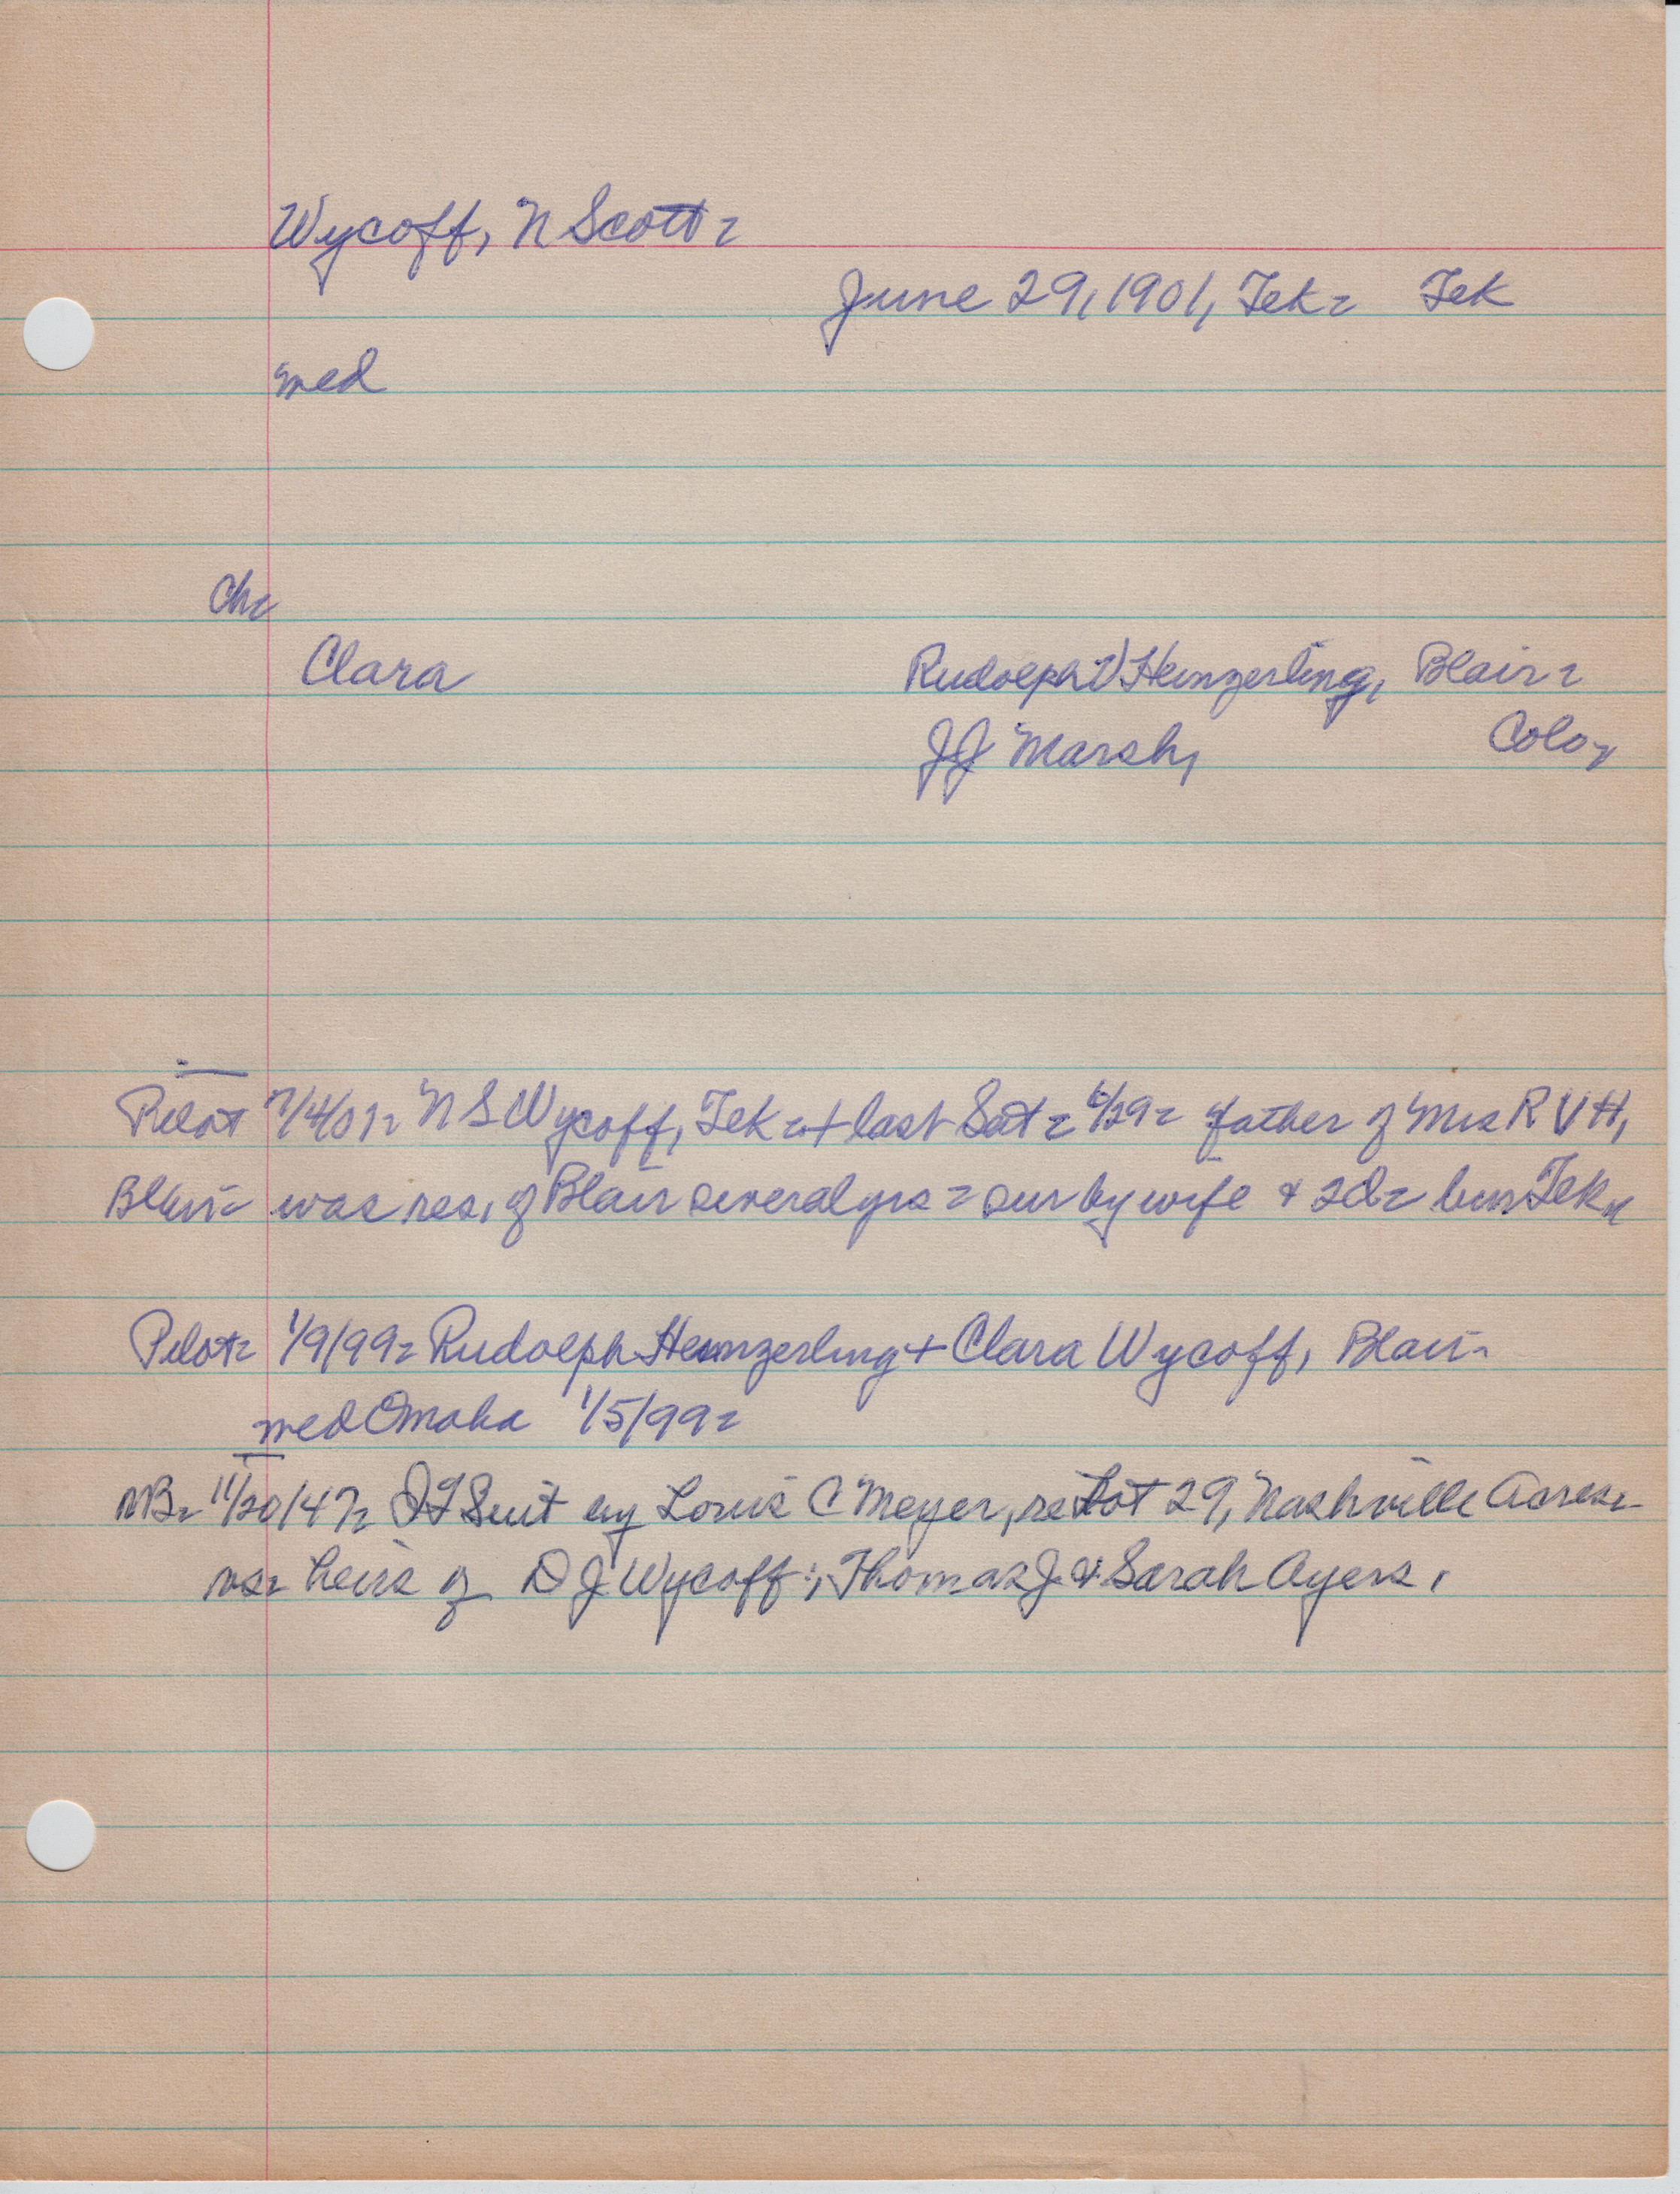 Wycoff, N Scott-
June 29, 1901, Tek- Tek
med
Ch-
Clara Rudolph V Heinzerling, Blair-
JJ Marsh, Colo,
Pilot 7/4/01- N S Wycoff, Tek- + last Sat- 6/29- father of Mrs R V H,
Blair- was res, of Blair several yrs- sur by wife & 2d- bur Tek-
Pilot- 1/9/99- Rudolph Heinzerling + Clara Wycoff, Blair-
med Omaha 1/5/99-
11/20/47- Suit by Louis C Meyer, re Lot 29, Nashville Acres-
vs- heirs of D J Wycoff; Thomas J & Sarah Ayers.